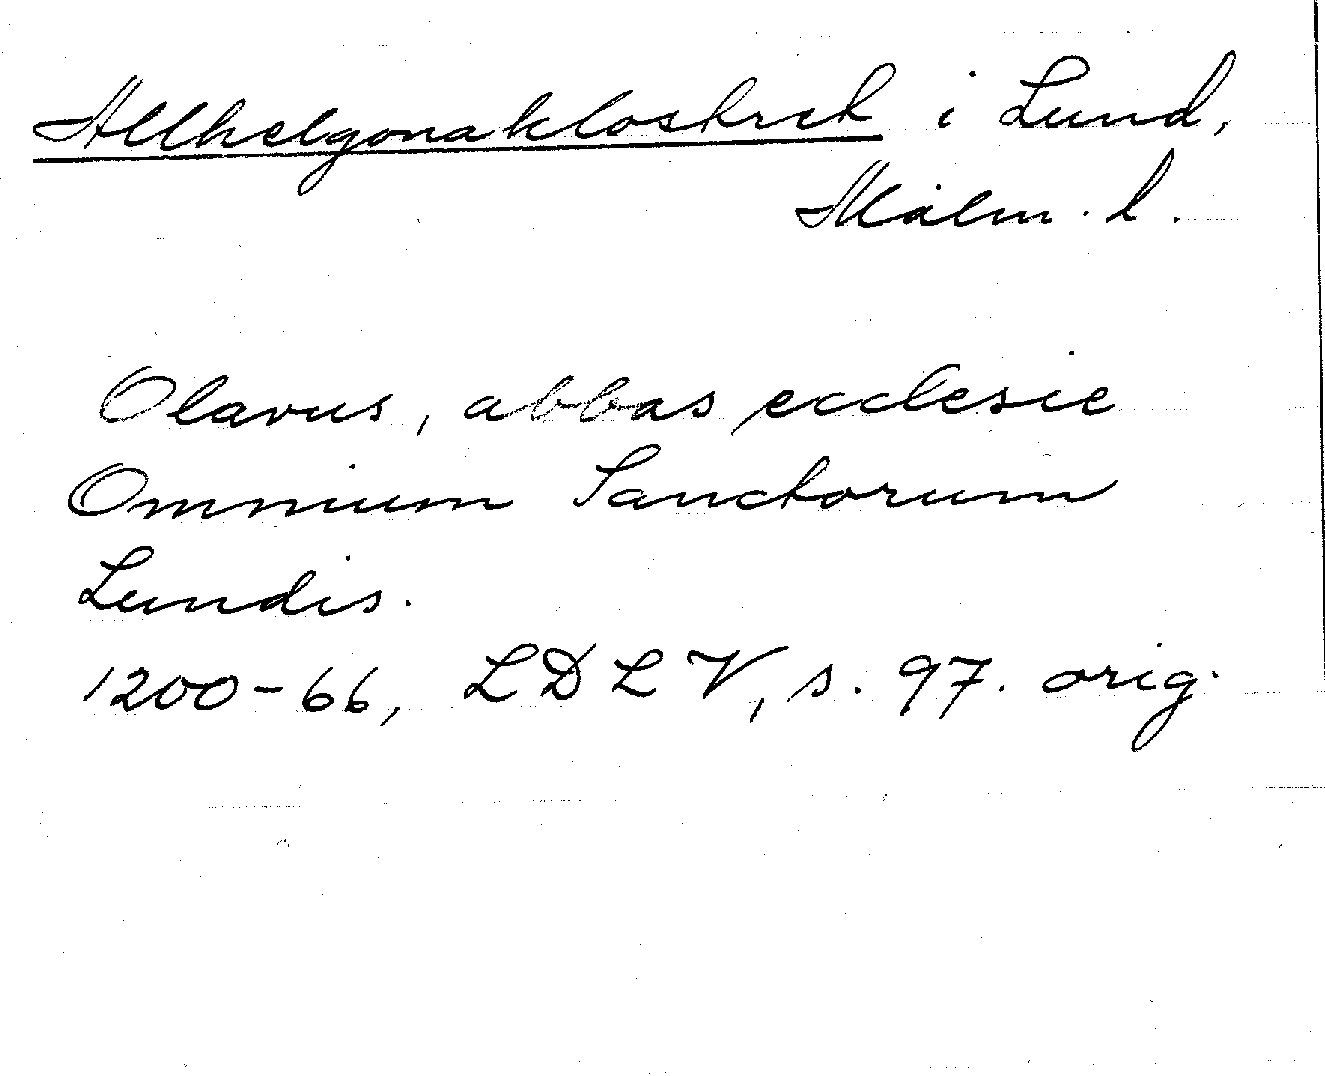 Allhelgonaklostret i Lund,
Malm. l.
Olavus, abbas ecclesie
Omnium Sanctorum
Lundis.
1200-66, LDLV, s. 97. orig.